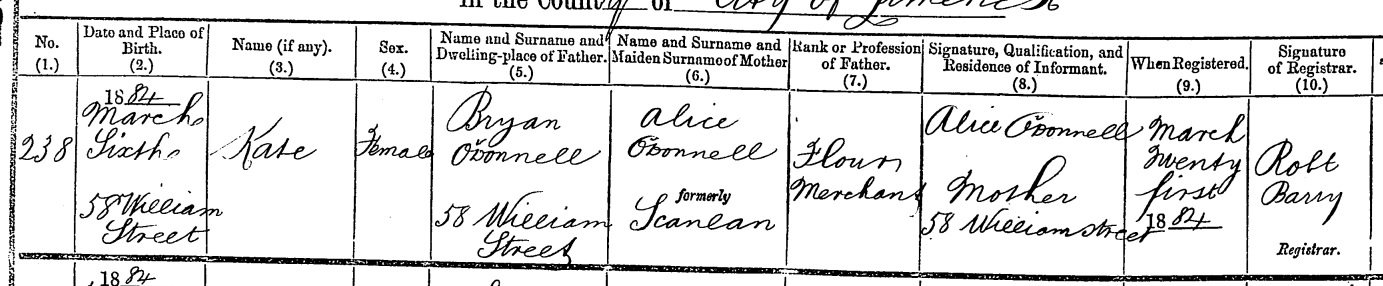 In the County of City of Limerick
No. (1.)
Date and Place of Birth. (2.)
Name (if any). (3.)
Sex. (4.)
Name and Surname and Dwelling-place of Father. (5.)
Name and Surname and Maiden Surname of Mother (6.)
Rank or Profession of Father. (7.)
Signature, Qualification, and Residence of Informant. (8.)
When Registered. (9.)
Signature of Registrar. (10.)
238
1884
March
Sixth
58 William
Street
Kate
Female
Bryan
O'Donnell
58 William
Street
Alice
O'Donnell
formerly
Scanlan
Flour
Merchant
Alice O'Donnell
Mother
58 William street
March
Twenty
first
1884
Robt
Barry
Registrar.
1884